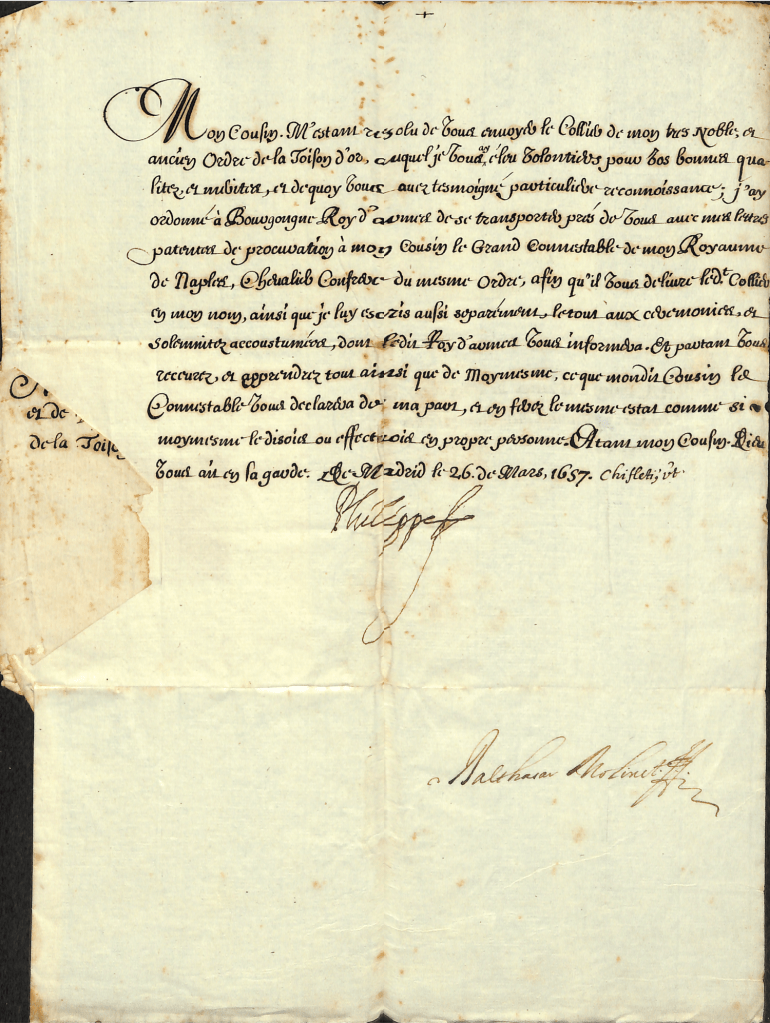 +
Mon Cousin. M'estant resolu de vous envoyer le Collier de mon tres Noble, et
ancien Ordre de la Toison d'or, auquel je vous ay éleu volontiers pour vos bonnes qua-
litez, et merites, et de quoy vous avez tesmoigné particuliere reconnoissance; j'ay
ordonné à Bourgongne Roy d'armes de se transporter prés de vous avec mes lettres
patentes de procuration à mon Cousin le Grand Connestable de mon Royaume
de Naples, Chevalier Confrere du mesme Ordre, afin qu'il vous delivre led.t Collier
en mon nom, ainsi que je luy escris aussi separément, le tout aux ceremonies, et
solemnitez accoustumées, dont ledit Roy d'armes vous informera. Et partant vous
receurez, et apprendrez tout ainsi que de Moymesme, ce que mondit Cousin le
Connestable vous declarera de ma part, et en ferez le mesme estat comme si
moymesme le disois ou effectuois en propre personne. Atant mon Cousin Dieu
vous ait en sa garde. De Madrid le 26. de Mars, 1657. Chiflet, vt
Philippe
et de
de la Toiso
Balthasar Molinet